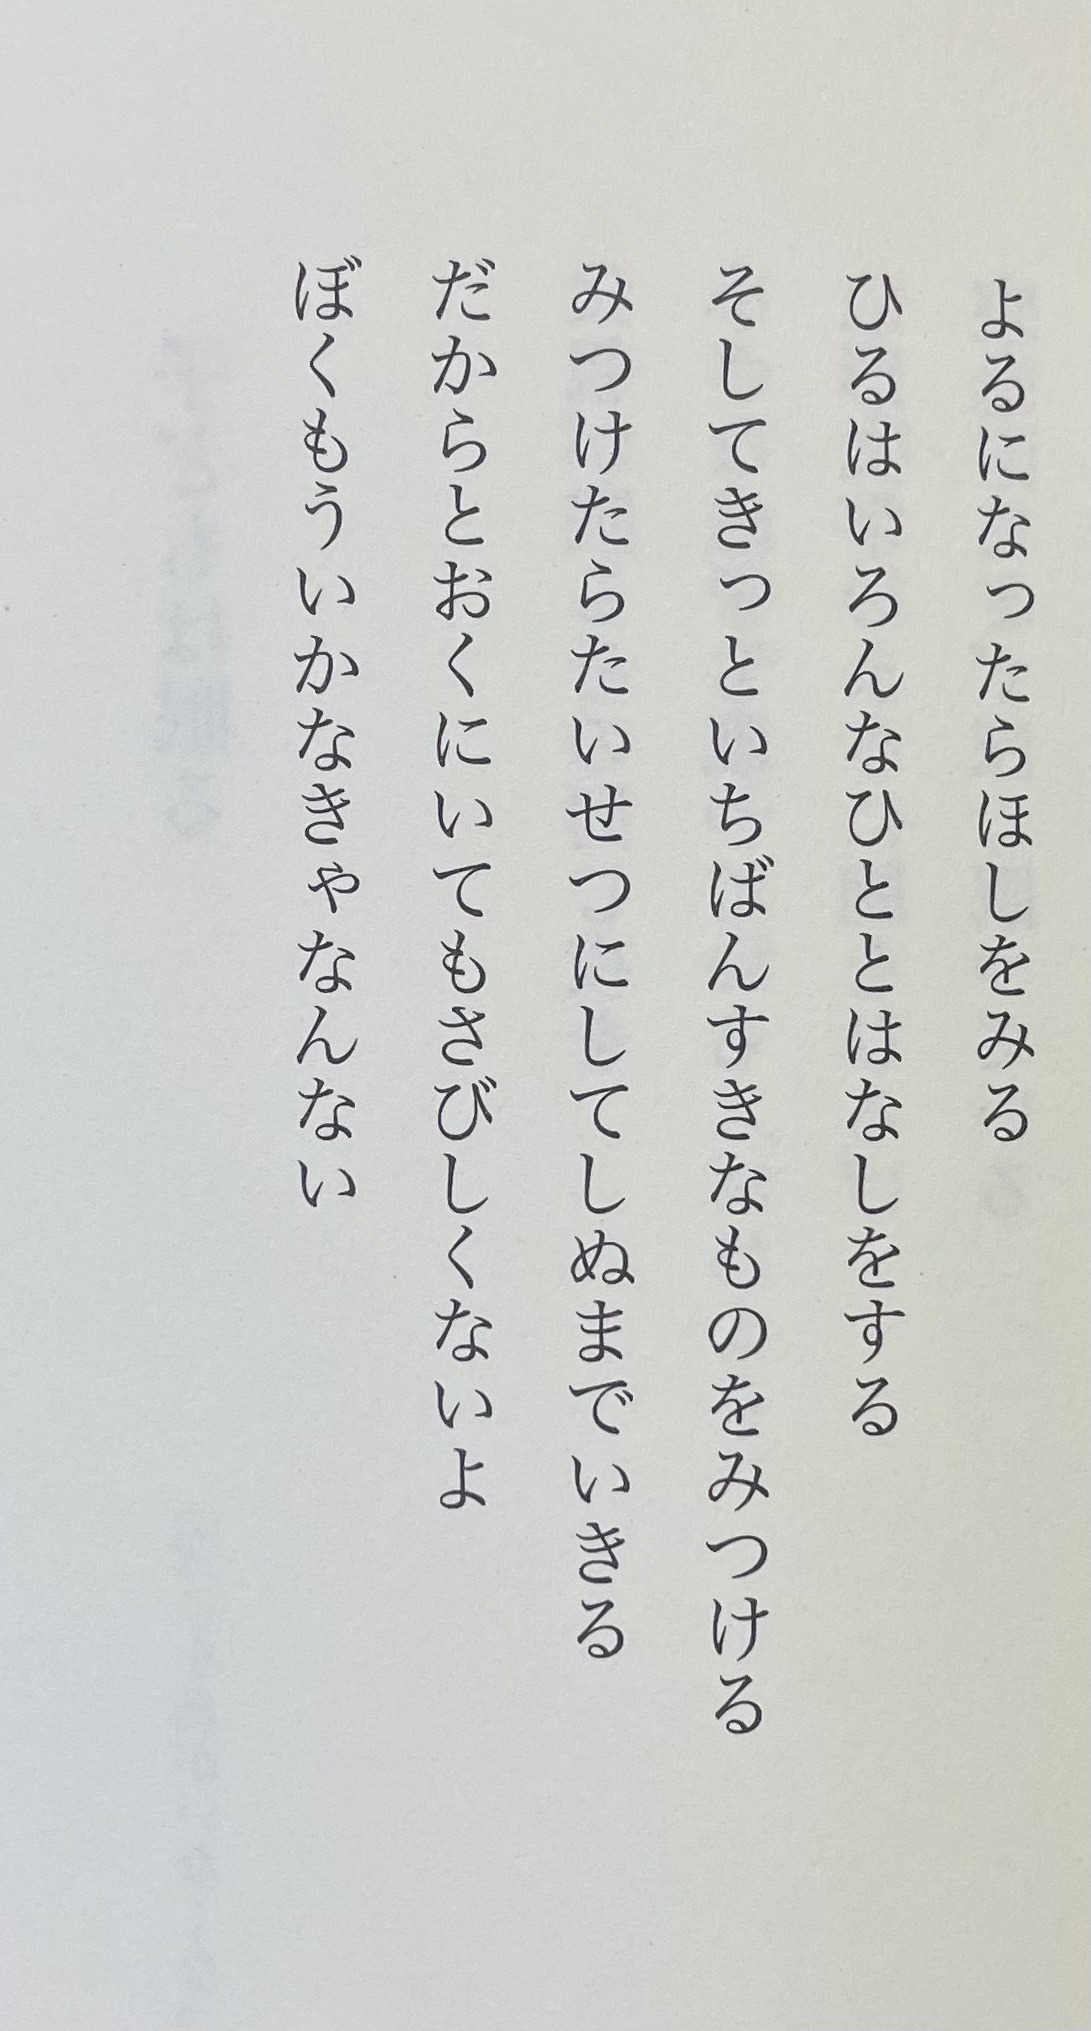 よるになったらほしをみる
ひるはいろんなひととはなしをする
そしてきっといちばんすきなものをみつける
みつけたらたいせつにしてしぬまでいきる
だからとおくにいてもさびしくないよ
ぼくもういかなきゃなんない